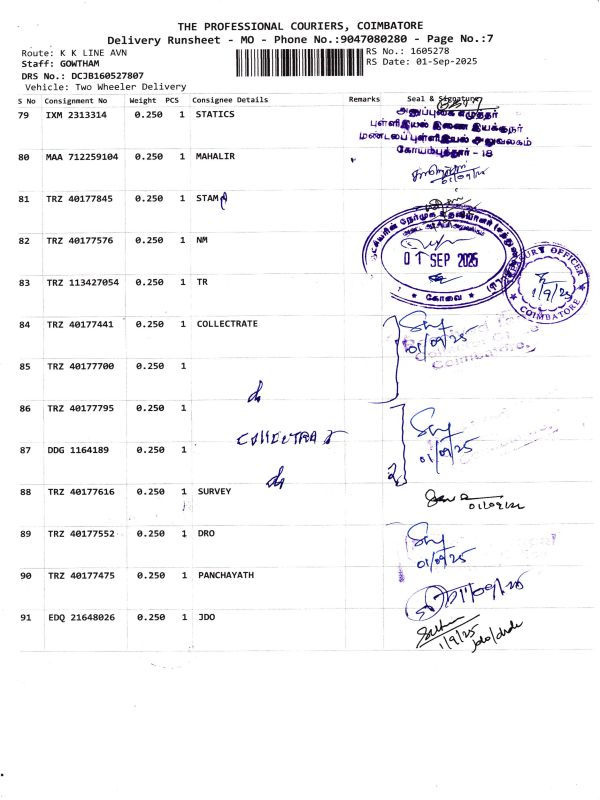 THE PROFESSIONAL COURIERS, COIMBATORE
Delivery Runsheet - MO - Phone No.:9047080280 - Page No.:7
Route: K K LINE AVN
RS No.: 1605278
Staff: GOWTHAM
RS Date: 01-Sep-2025
DRS No.: DCJB160527807
Vehicle: Two Wheeler Delivery
S No Consignment No Weight PCS Consignee Details Remarks Seal & Signature
79 IXM 2313314 0.250 1 STATICS
அனுப்புகை எழுத்தர்
புள்ளிஇயல் இணை இயக்குநர்
மண்டலப் புள்ளிஇயல் அலுவலகம்
கோயம்புத்தூர் - 18
80 MAA 712259104 0.250 1 MAHALIR
01/09/25
81 TRZ 40177845 0.250 1 STAMP
82 TRZ 40177576 0.250 1 NM
01 SEP 2025
கோவை
83 TRZ 113427054 0.250 1 TR
OFFICER
COIMBATORE
1/9/25
84 TRZ 40177441 0.250 1 COLLECTRATE
01/09/25
Coimbatore
85 TRZ 40177700 0.250 1
86 TRZ 40177795 0.250 1
87 DDG 1164189 0.250 1
01/09/25
88 TRZ 40177616 0.250 1 SURVEY
89 TRZ 40177552 0.250 1 DRO
01/09/25
90 TRZ 40177475 0.250 1 PANCHAYATH
91 EDQ 21648026 0.250 1 JDO
1/9/25